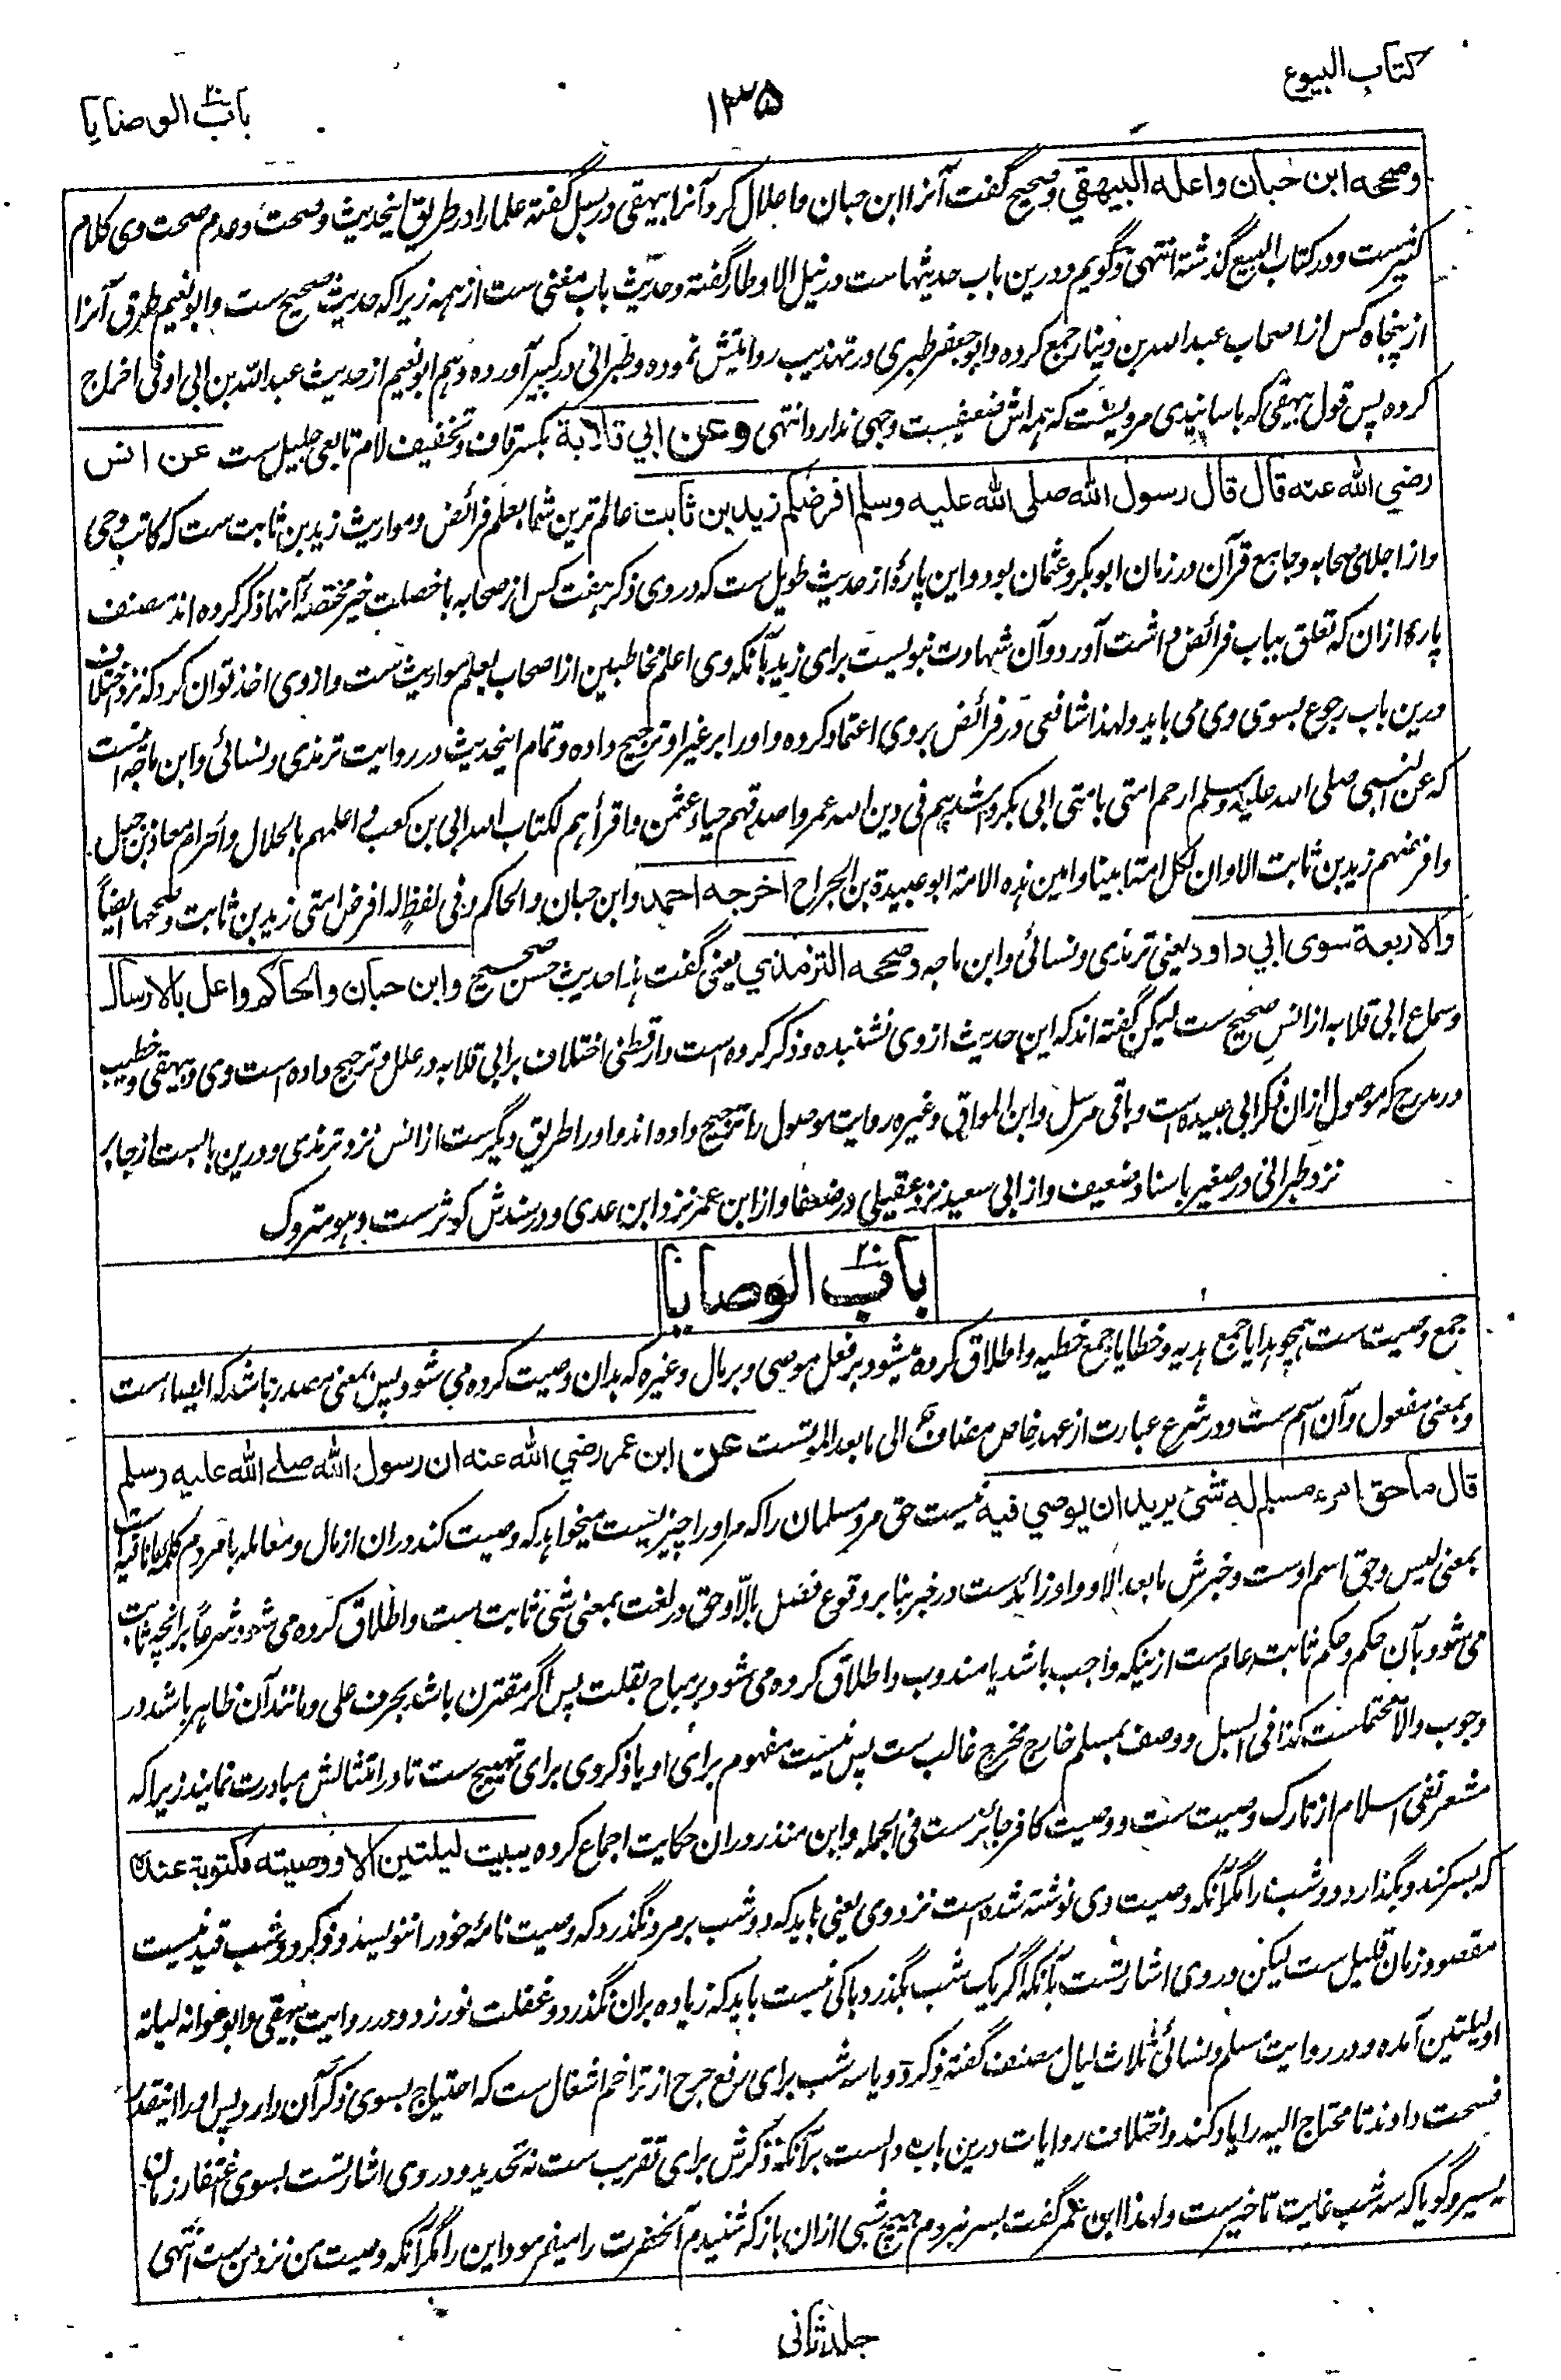 کتاب البیوع
۱۳۵
باب الوصایا
وصححه ابن حبان واعله البیهقي وصحیح گفت آنرا ابن حبان واعلال کرد آنرا بیهقی در سبل گفته علما را در طریق اینحدیث وصحت وعدم صحت وی کلام
کثیرست ودر کتاب البیع گذشته انتهی وگویم ودرین باب حدیثهاست در نیل الاوطار گفته وحدیث باب مغنی ست از همه زیرا که حدیث صحیح ست وابو نعیم طرق آنرا
از پنجاه کس از اصحاب عبد الله بن دینار جمع کرده وابو جعفر طبری در تهذیب روایتش نموده وطبرانی در کبیر آورده وهم ابو نعیم از حدیث عبد الله بن ابی اوفی اخراج
کرده پس قول بیهقی که باسانیدی مرویست که همه اش ضعیفست وجهی ندارد انتهی وعن ابي قلابة بکسر قاف وتخفیف لام تابعی جلیل ست عن انس
رضي الله عنه قال قال رسول الله صلى الله علیه وسلم افرضکم زید بن ثابت عالم ترین شما بعلم فرائض ومواریث زید بن ثابت ست که کاتب وحی
واز اجلای صحابه وجامع قرآن در زمان ابو بکر وعثمان بود واین پارهٔ از حدیث طویل ست که در وی ذکر هفت کس از صحابه با خصلت خیر مختصهٔ آنها ذکر کرده اند مصنف
پارهٔ ازان که تعلق بباب فرائض داشت آورد وآن شهادت نبویست برای زید بآنکه وی اعلم مخاطبین از اصحاب بعلم مواریث ست وازوی اخذ توان کرد که نزد اختلاف
درین باب رجوع بسوی وی می باید ولهذا شافعی در فرائض بروی اعتماد کرده واورا بر غیر او ترجیح داده وتمام اینحدیث در روایت ترمذی ونسائی وابن ماجه اینست
که عن النبی صلی الله علیه وسلم ارحم امتی بامتی ابی بکر واشدهم فی دین الله عمر واصدقهم حیاء عثمن واقرأهم لکتاب الله ابی بن کعب واعلمهم بالحلال والحرام معاذ بن جبل
وافرضهم زید بن ثابت الا وان لکل امة امینا وامین هذه الامة ابو عبیدة بن الجراح اخرجه احمد وابن حبان والحاکم وفی لفظ له افرض امتی زید بن ثابت وصححها ایضاً
والاربعة سوى ابي داود یعنی ترمذی ونسائی وابن ماجه وصححه الترمذي یعنی گفت هذا حدیث حسن صحیح وابن حبان والحاکم واعل بالارسال
وسماع ابی قلابه از انس صحیح ست لیکن گفته اند که این حدیث از وی نشنیده وذکر کرده است دارقطنی اختلاف بر ابی قلابه در علل وترجیح داده است وی وبیهقی وخطیب
در مدرج که موصول ازان ذکر ابی عبیده است وباقی مرسل وابن المواق وغیره روایت موصول را ترجیح داده اند واورا طریق دیگرست از انس نزد ترمذی ودرین بابست از جابر
نزد طبرانی در صغیر باسناد ضعیف واز ابی سعید نزد عقیلی در ضعفا واز ابن عمر نزد ابن عدی ودر سندش کوثر ست وهو متروک
باب الوصایا
جمع وصیت ست همچو هدایا جمع هدیه وخطایا جمع خطیه واطلاق کرده میشود بر فعل موصی وبر مال وغیره که بدان وصیت کرده می شود پس بمعنی مصدر باشد که ایصاء است
وبمعنی مفعول وآن اسم ست ودر شرع عبارت از عهد خاص مضاف الی ما بعد الموتست عن ابن عمر رضي الله عنه ان رسول الله صلے الله علیه وسلم
قال ما حق امرء مسلم له شئ یرید ان یوصي فیه نیست حق مرد مسلمان را که مر او را چیزیست میخواهد که وصیت کند دران از مال ومعامله با مردم کلمه ما نافیه است
بمعنی لیس وحق اسم اوست وخبرش ما بعد الا وواو زائدست در خبر بنا بر وقوع فصل بالّا وحق در لغت بمعنی شئ ثابت ست واطلاق کرده می شود شرعاً بر آنچه ثابت
می شود بآن حکم وحکم ثابت عام ست ازینکه واجب باشد یا مندوب واطلاق کرده می شود بر مباح بقلت پس اگر مقترن باشد بحرف علی ومانند آن ظاهر باشد در
وجوب والا محتملست کذا فی السبل ووصف بمسلم خارج مخرج غالب ست پس نیست مفهوم برای او یا ذکر وی برای تهییج ست تا در امتثالش مبادرت نمایند زیرا که
مشعر نفی اسلام از تارک وصیت ست ووصیت کافر جائز ست فی الجمله وابن منذر دران حکایت اجماع کرده یبیت لیلتین الا ووصیته مکتوبة عنده
که بسر کند وبگذارد دو شب را مگر آنکه وصیت وی نوشته شده است نزد وی یعنی باید که دو شب بر مرد نگذرد که وصیت نامهٔ خود را ننویسد وذکر دو شب قید نیست
مقصود زمان قلیل ست لیکن در وی اشارتست بآنکه اگر یک شب بگذرد باکی نیست باید که زیاده بران نگذرد وغفلت نورزد ودر روایت بیهقی وابو عوانه لیلة
او لیلتین آمده ودر روایت مسلم ونسائی ثلاث لیال مصنف گفته ذکر دو یا سه شب برای رفع حرج از تزاحم اشغال ست که احتیاج بسوی ذکر آن دارد پس او را اینقدر
فسحت دادند تا محتاج الیه را یاد کند واختلاف روایات درین باب دالست بر آنکه ذکرش برای تقریب ست نه تحدید ودر وی اشارتست بسوی اغتفار زمان
یسیر وگویا که سه شب غایت تاخیرست ولهذا ابن عمر گفت بسر نبردم هیچ شبی ازان باز که شنیدم آنحضرت را میفرمود این را مگر آنکه وصیت من نزد من ست انتهی
جلد ثانی